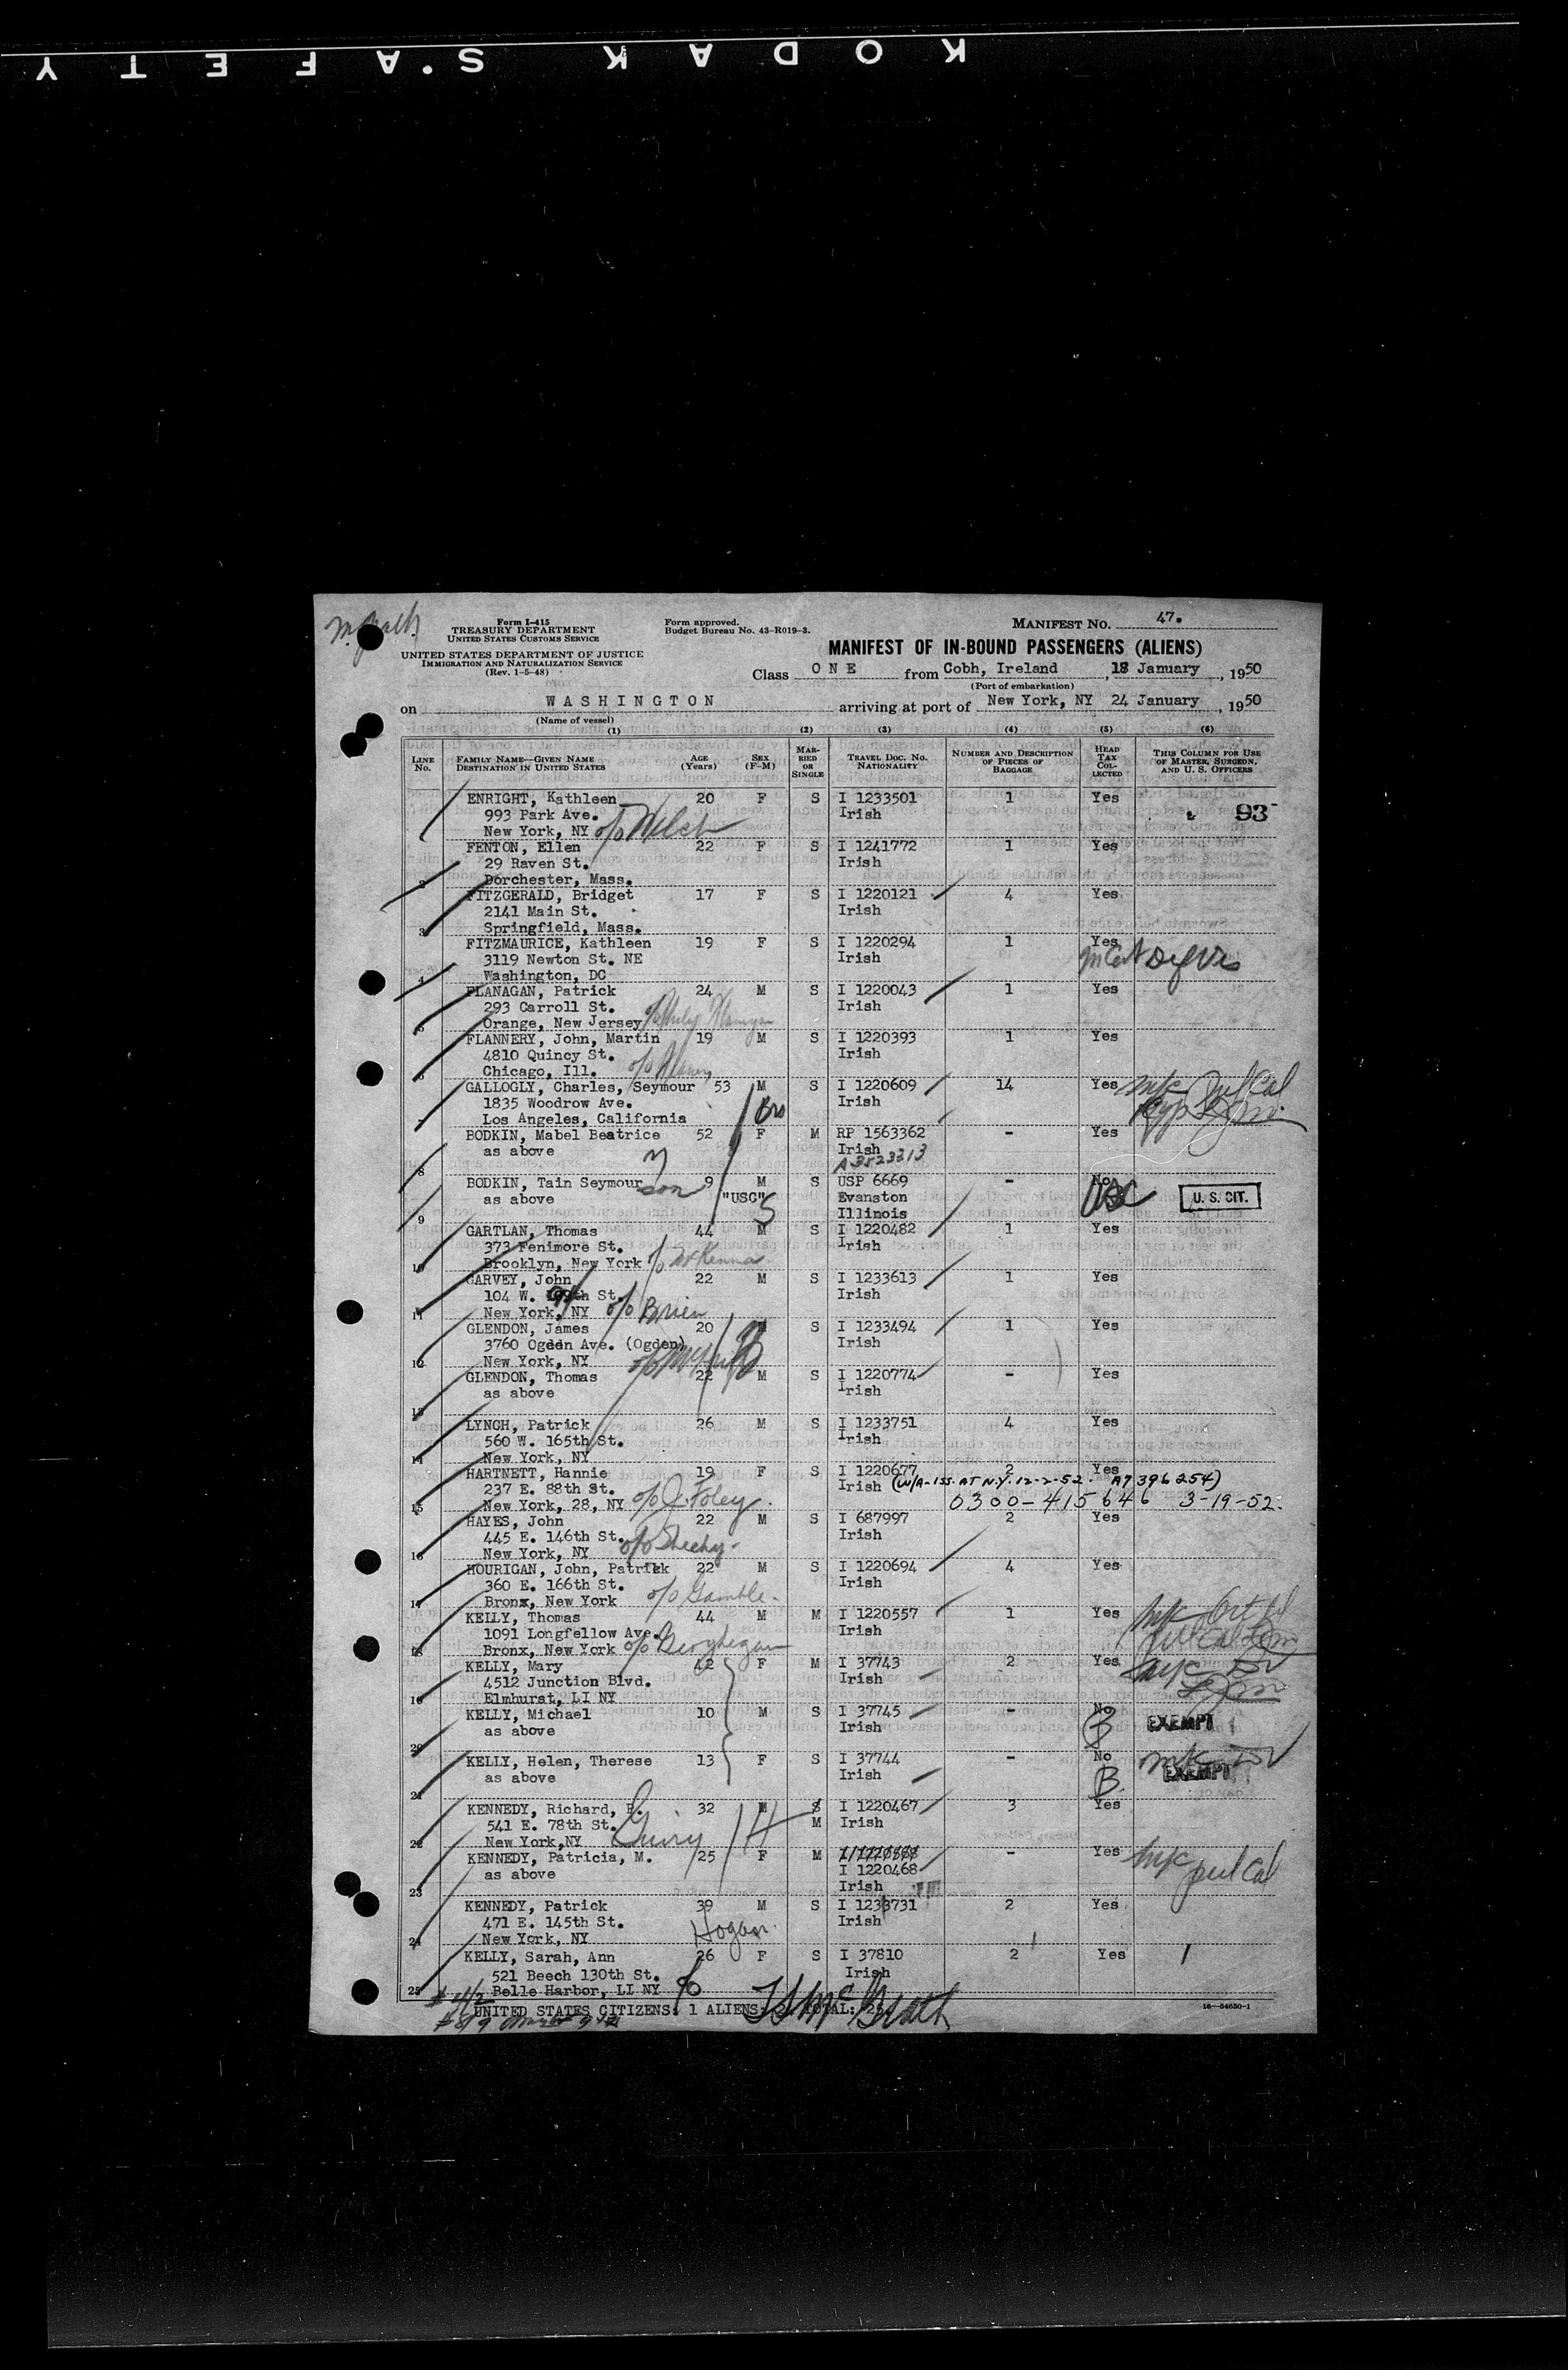 KODAK SAFETY
Form I-415
TREASURY DEPARTMENT
UNITED STATES CUSTOMS SERVICE
UNITED STATES DEPARTMENT OF JUSTICE
IMMIGRATION AND NATURALIZATION SERVICE
(Rev. 1-5-48)
Form approved.
Budget Bureau No. 43-R019-3.
MANIFEST NO. 47.
MANIFEST OF IN-BOUND PASSENGERS (ALIENS)
Class ONE from Cobh, Ireland, 18 January, 1950
(Port of embarkation)
on WASHINGTON arriving at port of New York, NY 24 January, 1950
(Name of vessel)
(1) (2) (3) (4) (5) (6)
LINE No. FAMILY NAME—GIVEN NAME DESTINATION IN UNITED STATES AGE (Years) SEX (F-M) MARRIED OR SINGLE TRAVEL DOC. NO. NATIONALITY NUMBER AND DESCRIPTION OF PIECES OF BAGGAGE HEAD TAX COLLECTED THIS COLUMN FOR USE OF MASTER, SURGEON, AND U. S. OFFICERS
ENRIGHT, Kathleen 20 F S I 1233501 1 Yes
993 Park Ave. Irish 93
1 New York, NY c/o Welch
FENTON, Ellen 22 F S I 1241772 1 Yes
29 Raven St. Irish
2 Dorchester, Mass.
FITZGERALD, Bridget 17 F S I 1220121 4 Yes
2141 Main St. Irish
3 Springfield, Mass.
FITZMAURICE, Kathleen 19 F S I 1220294 1 Yes
3119 Newton St. NE Irish
4 Washington, DC
FLANAGAN, Patrick 24 M S I 1220043 1 Yes
293 Carroll St. Irish
5 Orange, New Jersey
FLANNERY, John, Martin 19 M S I 1220393 1 Yes
4810 Quincy St. Irish
6 Chicago, Ill.
GALLOGLY, Charles, Seymour 53 M S I 1220609 14 Yes
1835 Woodrow Ave. Irish
7 Los Angeles, California Bro
BODKIN, Mabel Beatrice 52 F M RP 1563362 - Yes
as above Irish
8 A3523213
BODKIN, Tain Seymour son 9 M S USP 6669 - No
as above "USC" S Evanston USC U. S. CIT.
9 Illinois
GARTLAN, Thomas 44 M S I 1220482 1 Yes
373 Fenimore St. Irish
10 Brooklyn, New York c/o McKenna
GARVEY, John 22 M S I 1233613 1 Yes
104 W. St. Irish
11 New York, NY c/o Brien
GLENDON, James 20 M S I 1233494 1 Yes
3760 Ogden Ave. (Ogden) Irish
12 New York, NY
GLENDON, Thomas 22 M S I 1220774 - Yes
as above Irish
13
LYNCH, Patrick 26 M S I 1233751 4 Yes
560 W. 165th St. Irish
14 New York, NY
HARTNETT, Hannie 19 F S I 1220677 2 Yes
237 E. 88th St. Irish (W/A-ISS. AT N.Y. 12-2-52. A7 396 254)
15 New York, 28, NY c/o J. Foley 0300-415646 3-19-52.
HAYES, John 22 M S I 687997 2 Yes
445 E. 146th St. Irish
16 New York, NY c/o Sheehy
HOURIGAN, John, Patrick 22 M S I 1220694 4 Yes
360 E. 166th St. Irish
17 Bronx, New York c/o Gamble
KELLY, Thomas 44 M M I 1220557 1 Yes
1091 Longfellow Ave. Irish
18 Bronx, New York c/o Geoghegan
KELLY, Mary 42 F M I 37743 2 Yes
4512 Junction Blvd. Irish
19 Elmhurst, LI NY
KELLY, Michael 10 M S I 37745 - No
as above Irish EXEMPT
20
KELLY, Helen, Therese 13 F S I 37744 - No
as above Irish B EXEMPT
21
KENNEDY, Richard, P. 32 M S I 1220467 3 Yes
541 E. 78th St. M Irish
22 New York, NY Guiry H
KENNEDY, Patricia, M. 25 F M - Yes
as above I 1220468
23 Irish
KENNEDY, Patrick 39 M S I 1233731 2 Yes
471 E. 145th St. Irish
24 New York, NY Hogan
KELLY, Sarah, Ann 26 F S I 37810 2 Yes
521 Beech 130th St. Irish
25 Belle Harbor, LI NY c/o
UNITED STATES CITIZENS: 1 ALIENS: 24 TOTAL: 25
16—54650-1